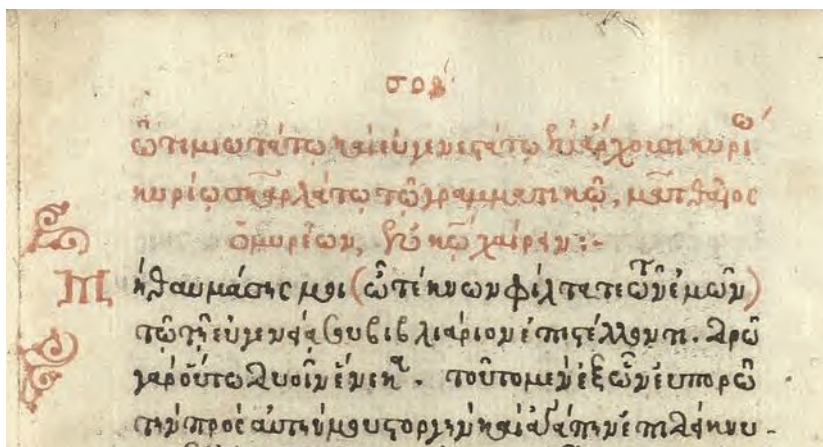 σοβʹ
τιμιωτάτῳ καὶ εὐγενεστάτῳ ἐν ἄρχουσι κυρίῳ
κυρίῳ σκαρλάτῳ τῷ γραμματικῷ, ματθαῖος
ὁ μυρέων, ἐν κῷ χαίρειν :-
Μὴ θαυμάσῃς μοι (ὦ τέκνων φίλτατε τῶν ἐμῶν)
τῷ τῇ εὐγενείᾳ σου βιβλιάριον ἐπιστέλλοντι. δρῶ
γὰρ οὕτω δυοῖν ἕνεκα. τοῦτο μὲν ἐξ ὧν εὐπορῶ
τὴν πρὸς αὐτὴν μου στοργὴν καὶ ἀγάπην ἐπιδείκνυ-